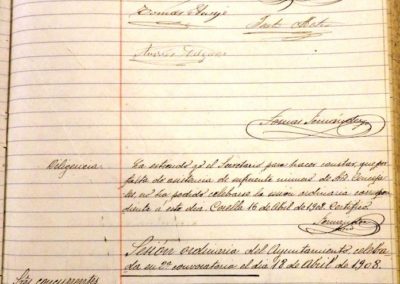 Tomás
Tomás Fernández
Diligencia. La extiendo yo el Secretario para hacer constar, que por
falta de asistencia de suficiente número de Srs. Conceja
les, no ha podido celebrarse la sesión ordinaria corespon
diente a este dia. Corella 16 de Abril de 1908. Certifico
Fernández
Sesión ordinaria del Ayuntamiento celebra
da en 2ª convocatoria el dia 18 de Abril de 1908.
Srs. concurrentes